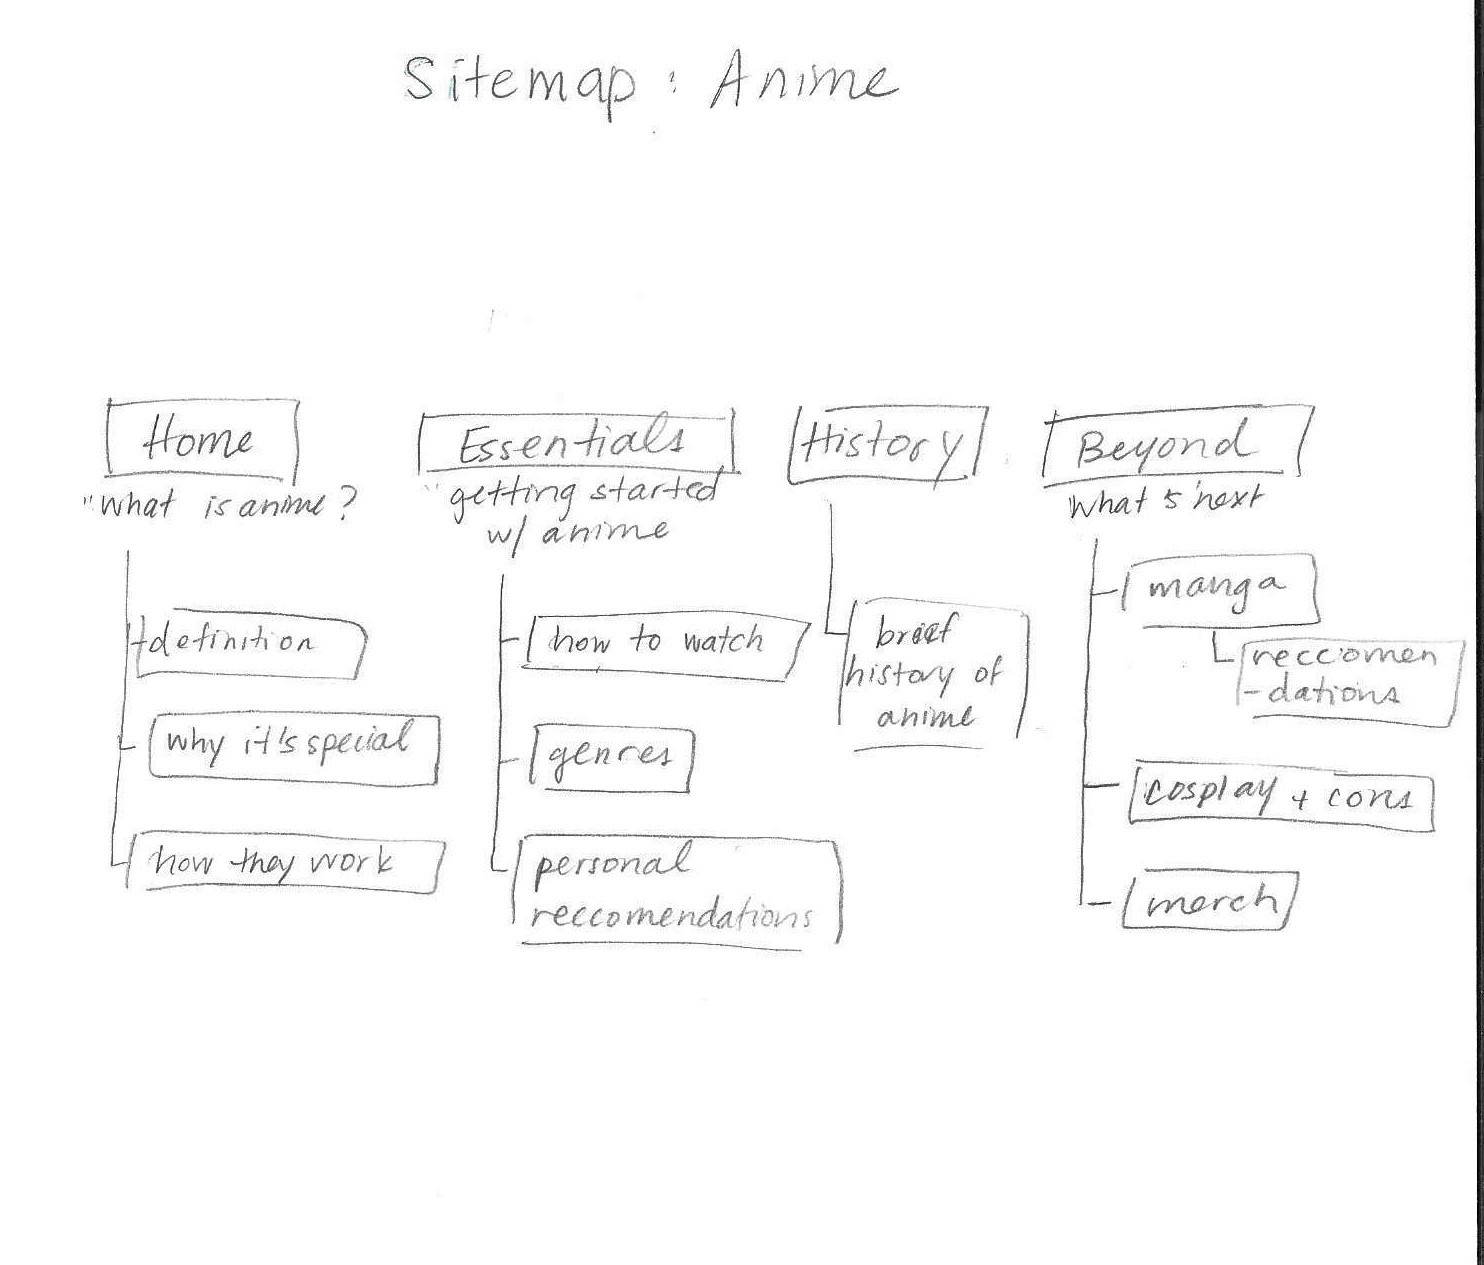 Sitemap : Anime
Home
"what is anime?
definition
why it's special
how they work
Essentials
"getting started
w/ anime
how to watch
genres
personal
reccomendations
History
brief
history of
anime
Beyond
what's next
manga
reccomen
-dations
cosplay + cons
merch